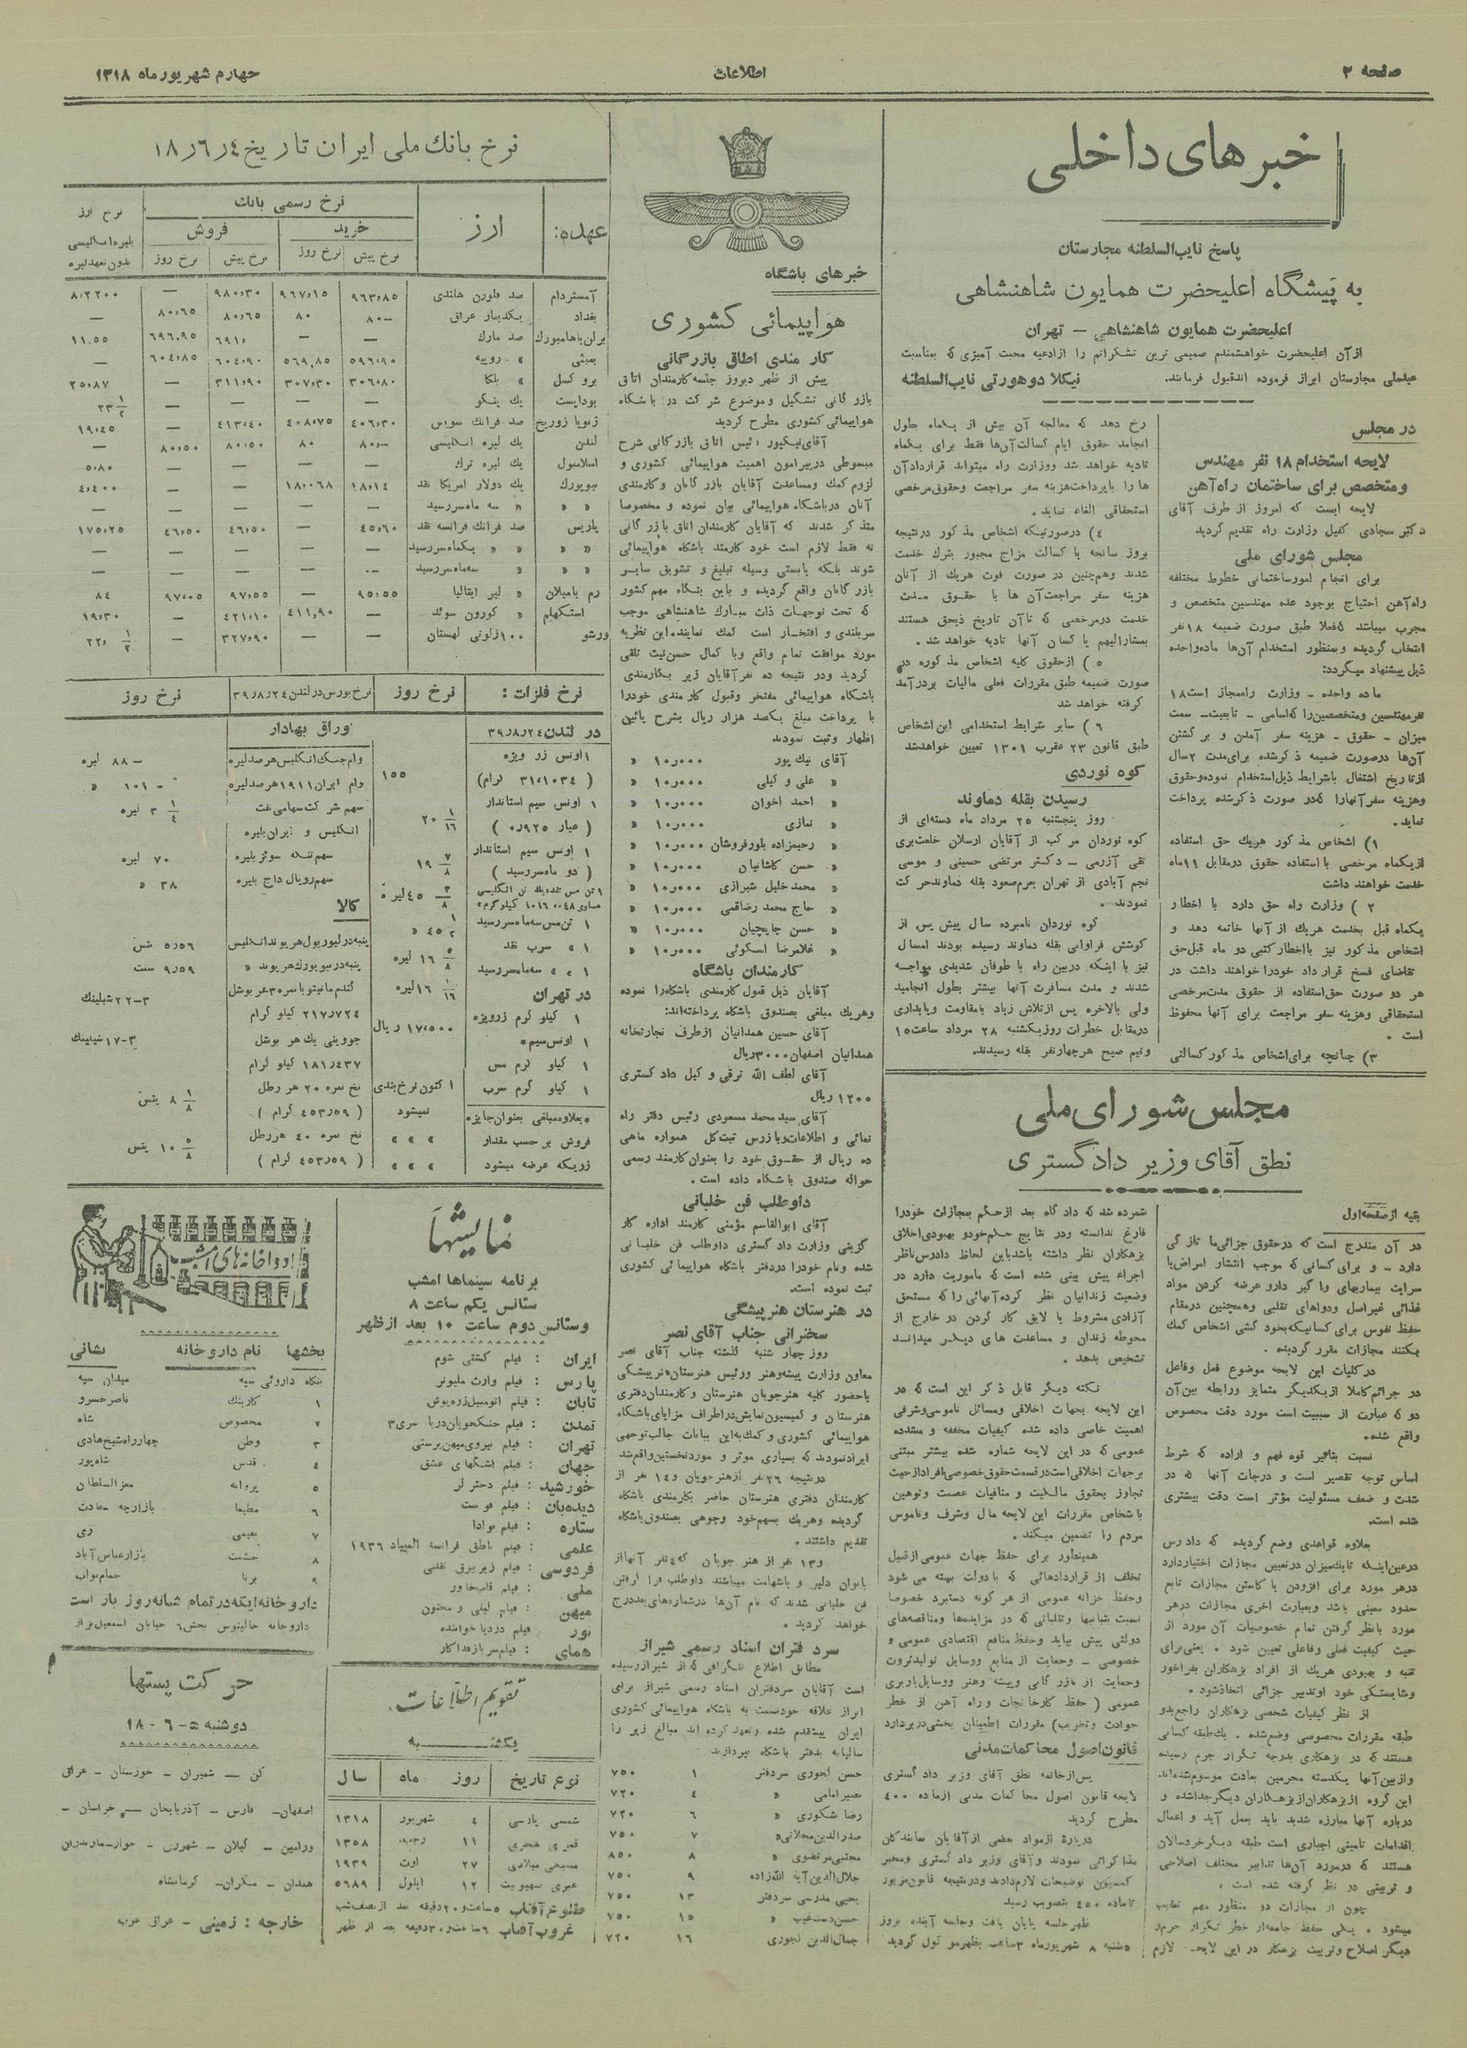 صفحه ۲
اطلاعات
چهارم شهریور ماه ۱۳۱۸
خبرهای داخلی
پاسخ نایب‌السلطنه مجارستان
به پیشگاه اعلیحضرت همایون شاهنشاهی
اعلیحضرت همایون شاهنشاهی – تهران
از آن اعلیحضرت خواهشمندم صمیمی ترین تشکراتم را از ادعیه محبت آمیزی که بمناسبت
عید ملی مجارستان ابراز فرموده اند قبول فرمایند. نیکلا دوهورتی نایب‌السلطنه
در مجلس
لایحه استخدام ۱۸ نفر مهندس
و متخصص برای ساختمان راه‌آهن
لایحه ایست که امروز از طرف آقای
دکتر سجادی کفیل وزارت راه تقدیم گردید
مجلس شورای ملی
برای انجام امور ساختمانی خطوط مختلفه
راه آهن احتیاج بوجود عده مهندسین متخصص و
مجرب میباشد که فعلا طبق صورت ضمیمه ۱۸ نفر
انتخاب گردیده و بمنظور استخدام آن‌ها ماده واحده
ذیل پیشنهاد میگردد:
ماده واحده – وزارت راه مجاز است ۱۸
نفر مهندسین و متخصصین را که اسامی – تابعیت – سمت
میزان – حقوق – هزینه سفر آمدن و برگشتن
آن‌ها در صورت ضمیمه ذکر شده برای مدت ۲ سال
از تاریخ اشتغال با شرایط ذیل استخدام نموده و حقوق
و هزینه سفر آنها را که در صورت ذکر شده پرداخت
نماید.
۱) اشخاص مذکور هر یک حق استفاده
از یکماه مرخصی با استفاده حقوق در مقابل ۱۱ ماه
خدمت خواهند داشت
۲) وزارت راه حق دارد با اخطار
یکماه قبل بخدمت هر یک از آنها خاتمه دهد و
اشخاص مذکور نیز با اخطار کتبی دو ماه قبل حق
تقاضای فسخ قرارداد خود را خواهند داشت در
هر دو صورت حق استفاده از حقوق مدت مرخصی
استحقاقی و هزینه سفر مراجعت برای آنها محفوظ
است.
۳) چنانچه برای اشخاص مذکور کسالتی
رخ دهد که معالجه آن بیش از یکماه بطول
انجامد حقوق ایام کسالت آن‌ها فقط برای یکماه
تادیه خواهد شد و وزارت راه میتواند قرارداد آن
ها را با پرداخت هزینه سفر مراجعت و حقوق مرخصی
استحقاقی الغاء نماید.
۴) در صورتیکه اشخاص مذکور در نتیجه
بروز سانحه یا کسالت مزاج مجبور بترک خدمت
شدند و هم‌چنین در صورت فوت هر یک از آنان
هزینه سفر مراجعت آن‌ها با حقوق مدت
خدمت در مرخصی که تا آن تاریخ ذیحق هستند
بمشارالیهم یا کسان آنها تادیه خواهد شد.
۵) از حقوق کلیه اشخاص مذکوره در
صورت ضمیمه طبق مقررات فعلی مالیات بردرآمد
گرفته خواهد شد
۶) سایر شرایط استخدامی این اشخاص
طبق قانون ۲۳ عقرب ۱۳۰۱ تعیین خواهد شد
کوه نوردی
رسیدن بقله دماوند
روز پنجشنبه ۲۵ مرداد ماه دسته‌ای از
کوه نوردان مرکب از آقایان ارسلان خلعت‌بری
تقی آزرمی – دکتر مرتضی حسینی و موسی
نجم آبادی از تهران بعزم صعود بقله دماوند حرکت
نمودند.
کوه نوردان نامبرده سال پیش پس از
کوشش فراوانی بقله دماوند رسیده بودند امسال
نیز با اینکه در بین راه با طوفان شدیدی مواجه
شدند و مدت مسافرت آنها بیشتر بطول انجامید
ولی بالاخره پس از تلاش زیاد با مقاومت و پایداری
در مقابل خطرات روز یکشنبه ۲۸ مرداد ساعت ۱۵
و نیم صبح هر چهار نفر بقله رسیدند.
مجلس شورای ملی
نطق آقای وزیر دادگستری
بقیه از صفحه اول
در آن مندرج است که در حقوق جزائی ما تازگی
دارد – و برای کسانی که موجب انتشار امراض یا
سرایت بیماریهای واگیر دارو عرضه کردن مواد
غذائی غیر اصل و دواهای تقلبی و همچنین در مقام
حفظ نفوس برای کسانیکه بخود کشی اشخاص کمک
بکنند مجازات مقرر گردیده.
در کلیات این لایحه موضوع فعل و فاعل
در جرائم کاملا از یکدیگر متمایز و رابطه بین آن
دو که عبارت از سببیت است مورد دقت مخصوص
واقع شده.
نسبت بتاثیر قوه فهم و اراده که شرط
اساس توجه تقصیر است و درجات آنها که در
شدت و ضعف مسئولیت مؤثر است دقت بیشتری
شده است.
بعلاوه قواعدی وضع گردیده که دادرس
در عین اینکه تا یک میزان در تعیین مجازات اختیار دارد
در هر مورد برای افزودن یا کاستن مجازات تابع
حدود معینی باشد و بعبارت اخری مجازات در هر
مورد با نظر گرفتن تمام خصوصیات آن مورد از
حیث کیفیت فعلی و فاعلی تعیین شود. یعنی برای
تنبه و بهبودی هر یک از افراد بزهکاران بفراخور
و شایستگی خود او تدبیر جزائی اتخاذ شود.
از نظر کیفیات شخصی بزهکاران راجع بدو
طبقه مقررات مخصوصی وضع شده. یک طبقه کسانی
هستند که در بزهکاری بدرجه تکرار جرم رسیده
و از بین آنها یکدسته مجرمین بعادت موسوم شده‌اند
این گروه از بزهکاران از بزهکاران دیگر جدا شده و
درباره آنها مبارزه شدید باید بعمل آید و اعمال
اقدامات تامینی اجباری است طبقه دیگر خردسالان
هستند که در مورد آن‌ها تدابیر مختلف اصلاحی
و تربیتی در نظر گرفته شده است.
چون از مجازات دو منظور مهم تعقیب
میشود. یکی حفظ جامعه از خطر تکرار جرم و
دیگر اصلاح و تربیت بزهکار در این لایحه لازم
شمرده شد که دادگاه بعد از حکم بمجازات خود را
فارغ ندانسته و در نتایج حکم خود و بهبودی اخلاق
بزهکاران نظر داشته باشد باین لحاظ دادرس ناظر
اجراء پیش بینی شده است که ماموریت دارد در
وضعیت زندانیان نظر کرده آنهائی را که مستحق
آزادی مشروط یا لایق کار کردن در خارج از
محوطه زندان و مساعدت های دیگر میداند
تشخیص بدهد.
نکته دیگر قابل ذکر این است که در
این لایحه بجهات اخلاقی و مسائل ناموسی و شرفی
اهمیت خاصی داده شده کیفیات مخففه و مشدده
عمومی که در این لایحه شماره شده بیشتر مبتنی
بر جهات اخلاقی است در قسمت حقوق خصوصی افراد از حیث
تجاوز بحقوق مالکیت و منافیات عصمت و توهین
باشخاص مقررات این لایحه مال و شرف و ناموس
مردم را تضمین میکند.
همینطور برای حفظ جهات عمومی از قبیل
تخلف از قراردادهائی که با دولت بسته می شود
و حفظ خزانه عمومی از هر گونه دستبرد خصوصا
نسبت بتبانیها و تقلباتی که در مزایده‌ها و مناقصه‌های
دولتی پیش بیاید و حفظ منافع اقتصادی عمومی و
خصوصی – و حمایت از منابع و وسایل تولید ثروت
و حمایت از بازرگانی و پیشه و هنر و وسایل باربری
عمومی (حفظ کارخانجات و راه آهن از خطر
حوادث و تخریب) مقررات اطمینان بخشی در بردارد
قانون اصول محاکمات مدنی
پس از خاتمه نطق آقای وزیر دادگستری
لایحه قانون اصول محاکمات مدنی از ماده ۴۰۰
مطرح گردید
درباره از مواد بعضی از آقایان نمایندگان
مذاکراتی نمودند و آقای وزیر دادگستری و مخبر
کمیسیون توضیحات لازم دادند و در نتیجه قانون مزبور
تا ماده ۴۵۰ بتصویب رسید
ظهر جلسه پایان یافت و جلسه آینده بروز
۵شنبه ۸ شهریور ماه ۳ ساعت بظهر موکول گردید
خبرهای باشگاه
هواپیمائی کشوری
کارمندی اطاق بازرگانی
پیش از ظهر دیروز جلسه کارمندان اتاق
بازرگانی تشکیل و موضوع شرکت در باشگاه
هواپیمائی کشوری مطرح گردید
آقای نیکپور رئیس اتاق بازرگانی شرح
مبسوطی در پیرامون اهمیت هواپیمائی کشوری و
لزوم کمک و مساعدت آقایان بازرگانان و کارمندی
آنان در باشگاه هواپیمائی بیان نموده و مخصوصا
متذکر شدند که آقایان کارمندان اتاق بازرگانی
نه فقط لازم است خود کارمند باشگاه هواپیمائی
شوند بلکه بایستی وسیله تبلیغ و تشویق سایر
بازرگانان واقع گردیده و باین بنگاه مهم کشور
که تحت توجهات ذات مبارک شاهنشاهی موجب
سربلندی و افتخار است کمک نمایند این نظریه
مورد موافقت تمام واقع و با کمال حسن نیت تلقی
گردید و در نتیجه ده نفر آقایان زیر بکارمندی
باشگاه هواپیمائی مفتخر و قبول کارمندی خود را
با پرداخت مبلغ یکصد هزار ریال بشرح پائین
اظهار و ثبت نمودند
آقای نیک پور ۱۰٫۰۰۰ »
» علی وکیلی ۱۰٫۰۰۰ »
» احمد اخوان ۱۰٫۰۰۰ »
» نمازی ۱۰٫۰۰۰ »
» رحیم‌زاده بلورفروشان ۱۰٫۰۰۰ »
» حسن کاشانیان ۱۰٫۰۰۰ »
» محمد خلیل شیرازی ۱۰٫۰۰۰ »
» حاج محمد رضا قمی ۱۰٫۰۰۰ »
» حسن چایچیان ۱۰٫۰۰۰ »
» غلامرضا اسکوئی ۱۰٫۰۰۰ »
کارمندان باشگاه
آقایان ذیل قبول کارمندی باشگاه را نموده
و هر یک مبلغی بصندوق باشگاه پرداخته‌اند:
آقای حسین همدانیان از طرف تجارتخانه
همدانیان اصفهان ۳۰۰۰ ریال
آقای لطف الله ترقی وکیل دادگستری
۱۲۰۰ ریال
آقای سید محمد مسعودی رئیس دفتر راه
نمائی و اطلاعات و بازرس ثبت کل همواره ماهی
ده ریال از حقوق خود را بعنوان کارمند رسمی
حواله صندوق باشگاه داده است.
داوطلب فن خلبانی
آقای ابوالقاسم مؤمنی کارمند اداره کار
گزینی وزارت دادگستری داوطلب فن خلبانی
شده و نام خود را در دفتر باشگاه هواپیمائی کشوری
ثبت نموده است.
در هنرستان هنرپیشگی
سخنرانی جناب آقای نصر
روز چهارشنبه گذشته جناب آقای نصر
معاون وزارت پیشه و هنر و رئیس هنرستان هنرپیشگی
با حضور کلیه هنرجویان هنرستان و کارمندان دفتری
هنرستان و کمیسیون نمایش در اطراف مزایای باشگاه
هواپیمائی کشوری و کمک به این بیانات جالب توجهی
ایراد نمودند که بسیاری موثر و مورد تحسین واقع شد
در نتیجه ۲۶ نفر از هنرجویان و ۱۴ نفر از
کارمندان دفتری هنرستان حاضر بکارمندی باشگاه
گردیده و هر یک بسهم خود وجوهی بصندوق باشگاه
تقدیم داشتند.
و ۱۳ نفر از هنرجویان که ۴ نفر آنها از
بانوان دلیر و باشهامت میباشند داوطلب فرا گرفتن
فن خلبانی شدند که نام آن‌ها در شماره‌های بعد درج
خواهد گردید.
سردفتران اسناد رسمی شیراز
مطابق اطلاع تلگرافی که از شیراز رسیده
است آقایان سردفتران اسناد رسمی شیراز برای
ابراز علاقه خود نسبت به باشگاه هواپیمائی کشوری
ایران پیشقدم شده و تعهد کرده اند مبالغ زیر را
سالیانه بدفتر باشگاه بپردازند
حسن کجوری سردفتر ۱ ۷۵۰
نصیر امامی » ۴ ۷۲۰
رضا شکوری » ۶ ۷۲۰
صدرالدین محلاتی » ۷ ۷۵۰
مجتبی مرتضوی » ۸ ۸۵۰
جلال‌الدین آیة الله‌زاده ۹ ۷۵۰
یحیی مدرسی سردفتر ۱۳ ۷۵۰
حسن دستغیب » ۱۵ ۷۵۰
جمال‌الدین کجوری ۱۶ ۷۲۰
نرخ بانک ملی ایران تاریخ ۱۸٫۶٫۴
عهده: ارز نرخ رسمی بانک نرخ ارز
خرید فروش بلیره انگلیسی بدون تعهد لیره
نرخ پیش نرخ روز نرخ پیش نرخ روز
آمستردام صد فلورن هلندی ۹۶۳٫۸۵ ۹۶۷٫۱۵ ۹۸۰٫۳۰ — ۸٫۲۲۰۰
بغداد یکدینار عراق ۸۰— ۸۰ ۸۰٫۶۵ ۸۰٫۶۵ —
برلن یا هامبورک صد مارک ۶۹۱٫ ۶۹۶٫۹۵ ۱۱.۵۵
بمبئی » روپیه ۵۹۶٫۹۰ ۵۶۹٫۸۵ ۶۰۴٫۹۰ ۶۰۴٫۸۵ —
بروکسل » بلگا ۳۰۶٫۸۰ ۳۰۷٫۳۰ ۳۱۱٫۹۰ — ۲۵٫۸۷
بوداپست یک پنگو — — — — ۲۳ ۱/۲
ژنو یا زوریخ صد فرانک سویس ۴۰۶٫۳۰ ۴۰۸٫۷۵ ۴۱۳٫۴۰ — ۱۹٫۴۵
لندن یک لیره انگلیسی ۸۰— ۸۰ ۸۰٫۵۰ ۸۰٫۵۰ —
اسلامبول یک لیره ترک — — — — ۵٫۸۰
نیویورک یک دولار امریکا نقد ۱۸٫۱۴ ۱۸٫۰۶۸ — — ۴٫۴۰۰
» » » سه ماه سررسید — — — —
پاریس صد فرانک فرانسه نقد ۴۵٫۶۰ — ۴۶٫۵۰ ۴۶٫۵۰ ۱۷۵٫۲۵
» » » یکماه سررسید — — — — —
» » » سه‌ماه سررسید — — — —
رم یا میلان » لیر ایتالیا ۹۵٫۵۵ — ۹۷٫۵۵ ۹۷٫۰۵ ۸۴
استکهلم » کورون سوئد ۴۱۱٫۹۰ ۴۲۱٫۱۰ — ۱۹٫۳۰
ورشو ۱۰۰ زلوتی لهستان — — ۳۲۷٫۹۰ — ۲۲٫ ۱/۲
نرخ فلزات: نرخ روز
در لندن ۳۹٫۸٫۲۴
۱ اونس زر ویژه ۱۵۵
(۳۱٫۱۰۳۴ گرام)
۱ اونس سیم استاندار ۲۰ ۱/۱۶
(عیار ۰٫۹۲۵)
۱ اونس سیم استاندار ۱۹ ۷/۸
(دو ماه سررسید)
۱ تن مس نقد یک تن انگلیسی ۴۵ ۳/۸ لیره
مساوی ۱۰۱۶٫۰۴۸ کیلوگرم
۱ تن مس سه ماه سررسید ۴۵ ۱/۲ »
۱ » سرب نقد ۱۶ ۵/۸ لیره
۱ » » سه ماه سررسید ۱۶ ۱/۱۶ لیره
در تهران
۱ کیلو گرم زر ویژه ۱۷٫۵۰۰ ریال
۱ اونس سیم *
۱ کیلو گرم مس
۱ کیلو گرم سرب
اکنون نرخ‌بندی
نمیشود
» » »
» » »
* بعلاوه مبلغی بعنوان جایزه
فروش بر حسب مقدار
زریکه عرضه میشود
نرخ بورس در لندن ۳۹٫۸٫۲۴ نرخ روز
اوراق بهادار
وام جنگ انگلیس هر صد لیره ۸۸ — لیره
وام ایران ۱۹۱۱ هر صد لیره ۱۰۱ — »
سهم شرکت سهامی نفت ۳ ۱/۴ لیره
انگلیس و ایران بلیره
سهم تنگه سوئز بلیره ۷۰ لیره
سهم رویال داچ بلیره ۳۸ »
کالا
پنبه در لیورپول هر پوند انگلیس ۵٫۵۶ شن
پنبه در نیویورک هر پوند » ۹٫۵۹ سنت
گندم مانیتوبا نمره ۳ هر بوشل ۲۲–۳ شیلینگ
۲۱۷٫۷۲۴ کیلو گرام
جو وینی پگ هر بوشل ۱۷–۳ شیلینگ
۱۸۱٫۴۳۷ کیلو گرام
نخ نمره ۲۰ هر رطل ۸ ۱/۸ پنس
(۴۵۳٫۵۹ گرام)
نخ نمره ۴۰ هر رطل ۱۰ ۵/۸ پنس
(۴۵۳٫۵۹ گرام)
نمایشها
برنامه سینماها امشب
سئانس یکم ساعت ۸
و سئانس دوم ساعت ۱۰ بعد از ظهر
ایران : فیلم کشتی شوم
پارس : فیلم وارث ملیونر
تابان : فیلم اتومبیل زره‌پوش
تمدن : فیلم جنگجویان دریا سری ۳
تهران : فیلم نیروی میهن پرستی
جهان : فیلم اشکهای عشق
خورشید : فیلم دختر لر
دیده‌بان : فیلم فوست
ستاره : فیلم موادا
علمی : فیلم ناطق فرانسه المپیاد ۱۹۳۶
فردوسی : فیلم زیر بیرق تقلبی
ملی : فیلم قلب خاور
میهن : فیلم لیلی و مجنون
نور : فیلم دزد یا خواننده
همای : فیلم سرباز فداکار
دواخانه‌های امشب
بخشها نام داروخانه نشانی
بنگاه داروئی سپه میدان سپه
۱ کاربنک ناصرخسرو
۲ مخصوص شاه
۳ وطن چهارراه شیخ‌هادی
۴ قدس شاه‌پور
۵ پروانه معزالسلطان
۶ مظیما بازارچه سعادت
۷ نعیمی ری
۸ حشمت بازار عباس آباد
۹ برنا حمام نواب
داروخانه ایکه در تمام شبانه روز باز است
داروخانه جالینوس بخش ۶ خیابان اسمعیل بزاز
حرکت پستها
دوشنبه ۵–۶–۱۸
کن – شمیران – خوزستان – عراق
اصفهان – فارس – آذربایجان – خراسان –
ورامین – گیلان – شهرری – خوار – مازندران
همدان – مکران – کرمانشاه
خارجه: زمینی – عراق عرب
تقویم اطلاعات
یکشنبه
نوع تاریخ روز ماه سال
شمسی پارسی ۴ شهریور ۱۳۱۸
قمری هجری ۱۱ رجب ۱۳۵۸
مسیحی میلادی ۲۷ اوت ۱۹۳۹
عبری صهیونیت ۱۲ ایلول ۵۶۸۹
طلوع آفتاب ۵ ساعت و ۲۰ دقیقه بعد از نصف شب
غروب آفتاب ۶ ساعت و ۳۰ دقیقه بعد از ظهر